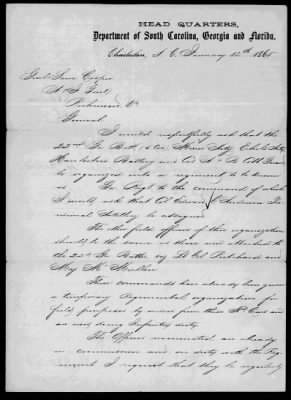 HEAD QUARTERS,
Department of South Carolina, Georgia and Florida.
Charleston, S. C. January 12th 1865
Genl Saml Cooper
A & I Genl
Richmond Va
General
I would respectfully ask that the
22nd Ga Batt,
Battery and Co
to organized into a regiment to be known
as Ga Regt to the command of which
I would ask that Col Edward C Anderson
Artillery be assigned.
The other field officers of this organization
should to the same as those now attached to the
the 22nd Ga Battn viz Lt Col Pritchard and
Maj McMullen
These commands have already been given
a temporary Regimental organization for
field purposes by orders from these Hd Qurs and
are now doing Infantry duty.
The Officers nominated are already
in commission and on duty with the Reg
iment I request that they be regularly